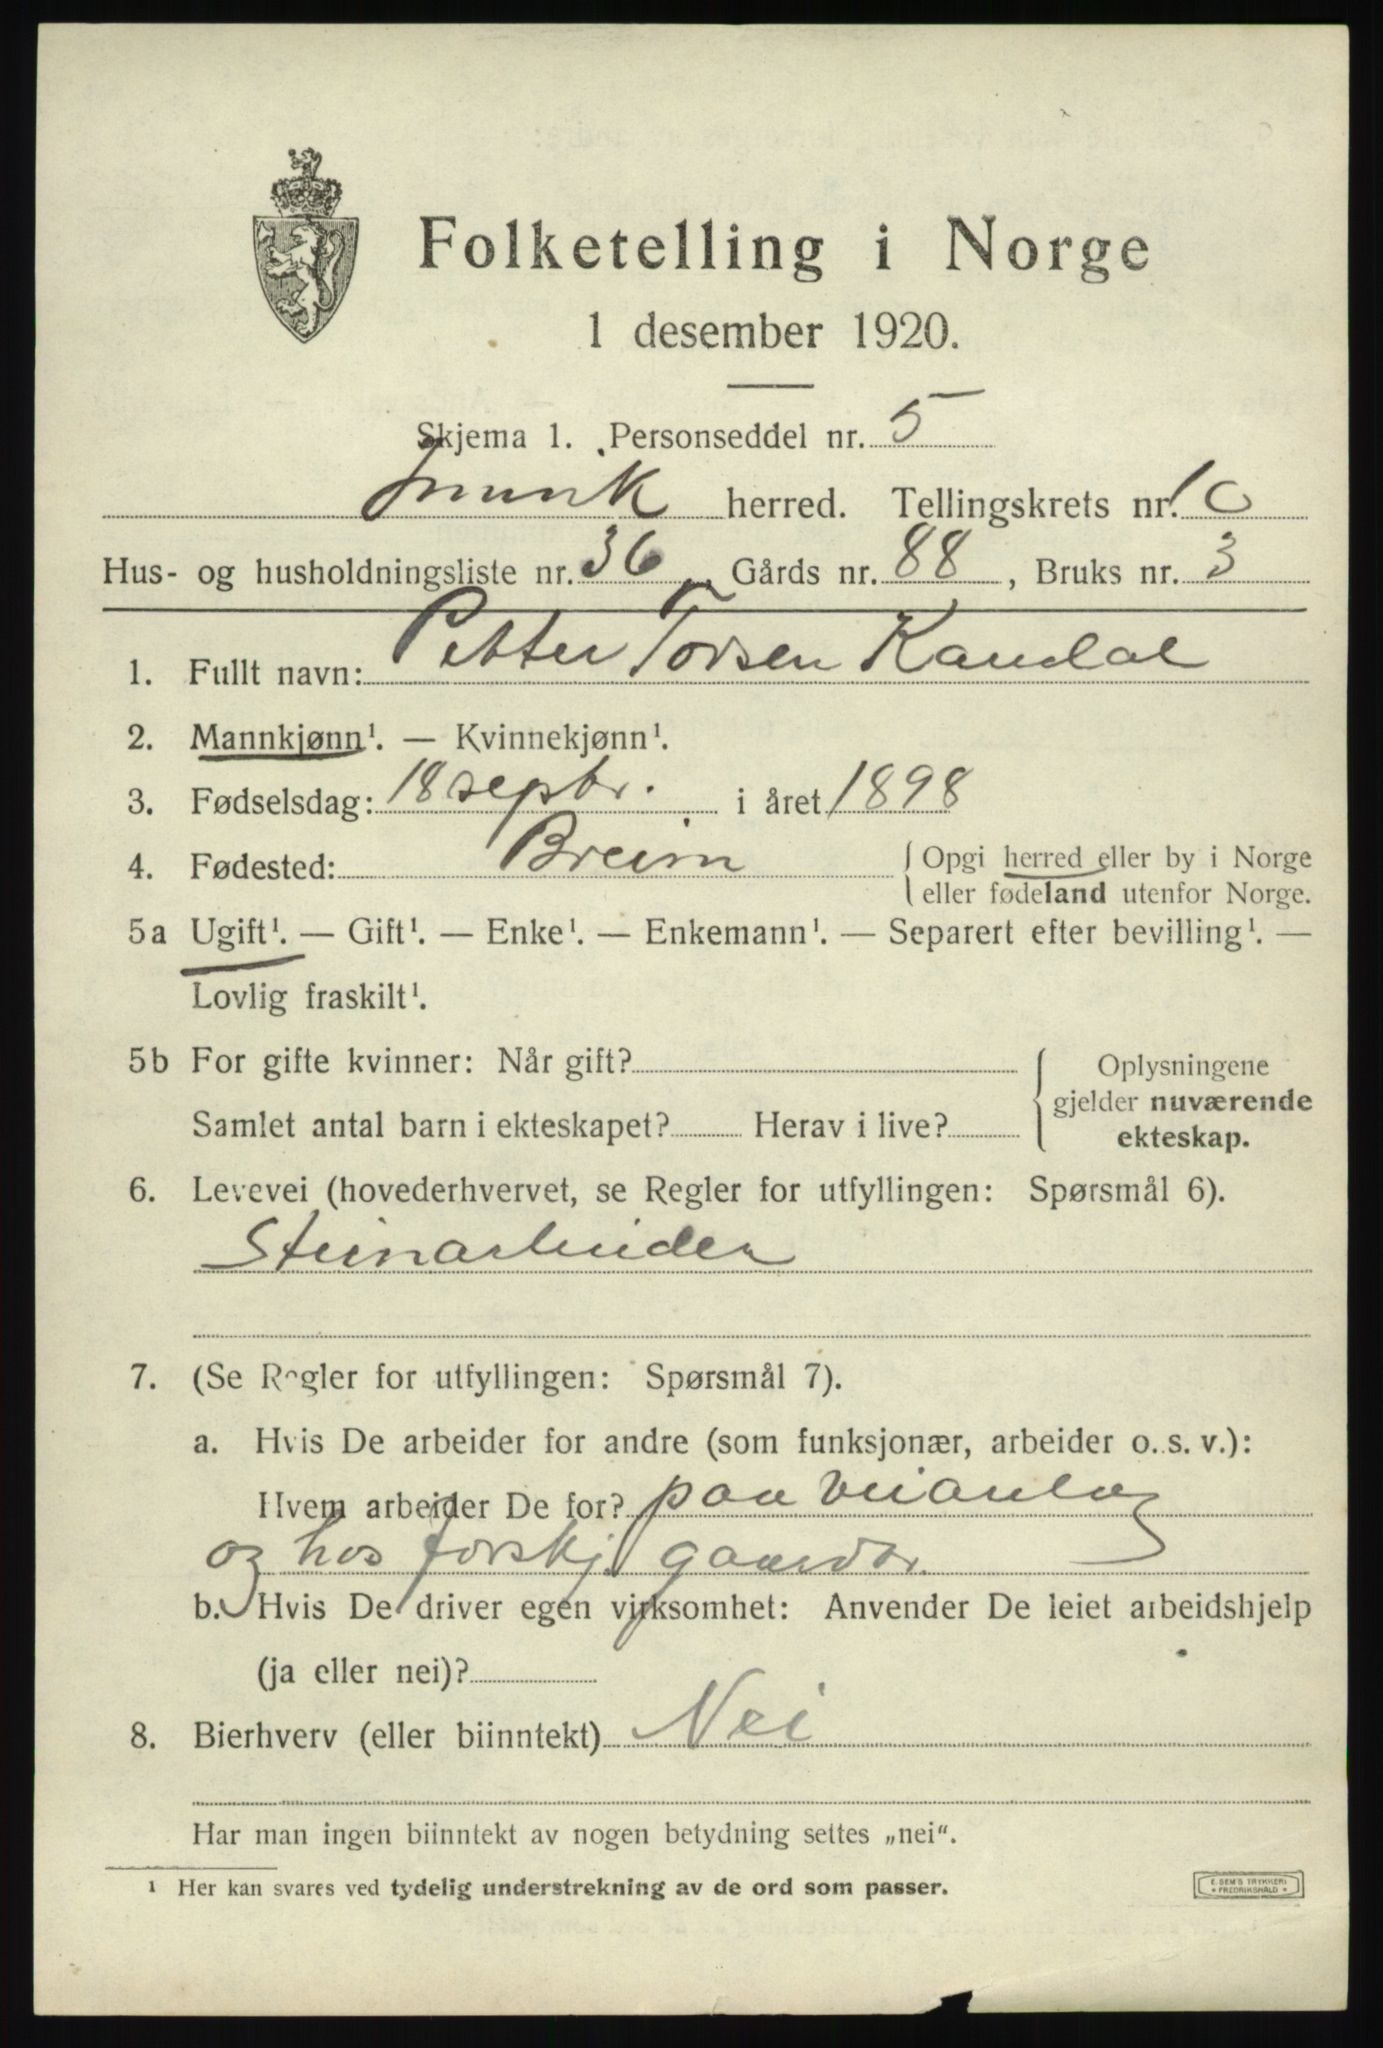 Folketelling i Norge
1 desember 1920.
Skjema 1. Personseddel nr. 5
Innvik herred. Tellingskrets nr. 10
Hus- og husholdningsliste nr. 36, Gårds nr. 88, Bruks nr. 3
1. Fullt navn: Petter Torsen Kandal
2. Mannkjønn¹. — Kvinnekjønn¹.
3. Fødselsdag: 18 septbr. i året 1898
4. Fødested: Breim { Opgi herred eller by i Norge
eller fødeland utenfor Norge.
5 a Ugift¹. — Gift¹. — Enke¹. — Enkemann¹. — Separert efter bevilling¹. —
Lovlig fraskilt¹.
5 b For gifte kvinner: Når gift? { Oplysningene
gjelder nuværende
Samlet antal barn i ekteskapet? Herav i live? ekteskap.
6. Levevei (hovederhvervet, se Regler for utfyllingen: Spørsmål 6).
Steinarbeider
7. (Se Regler for utfyllingen: Spørsmål 7).
a. Hvis De arbeider for andre (som funksjonær, arbeider o. s. v.):
Hvem arbeider De for? paa veianlæg
og hos forskj. gaardbr.
b. Hvis De driver egen virksomhet: Anvender De leiet arbeidshjelp
(ja eller nei)?
8. Bierhverv (eller biinntekt) Nei
Har man ingen biinntekt av nogen betydning settes „nei“.
¹ Her kan svares ved tydelig understrekning av de ord som passer.
E. SEM'S TRYKKERI
FREDRIKSHALD